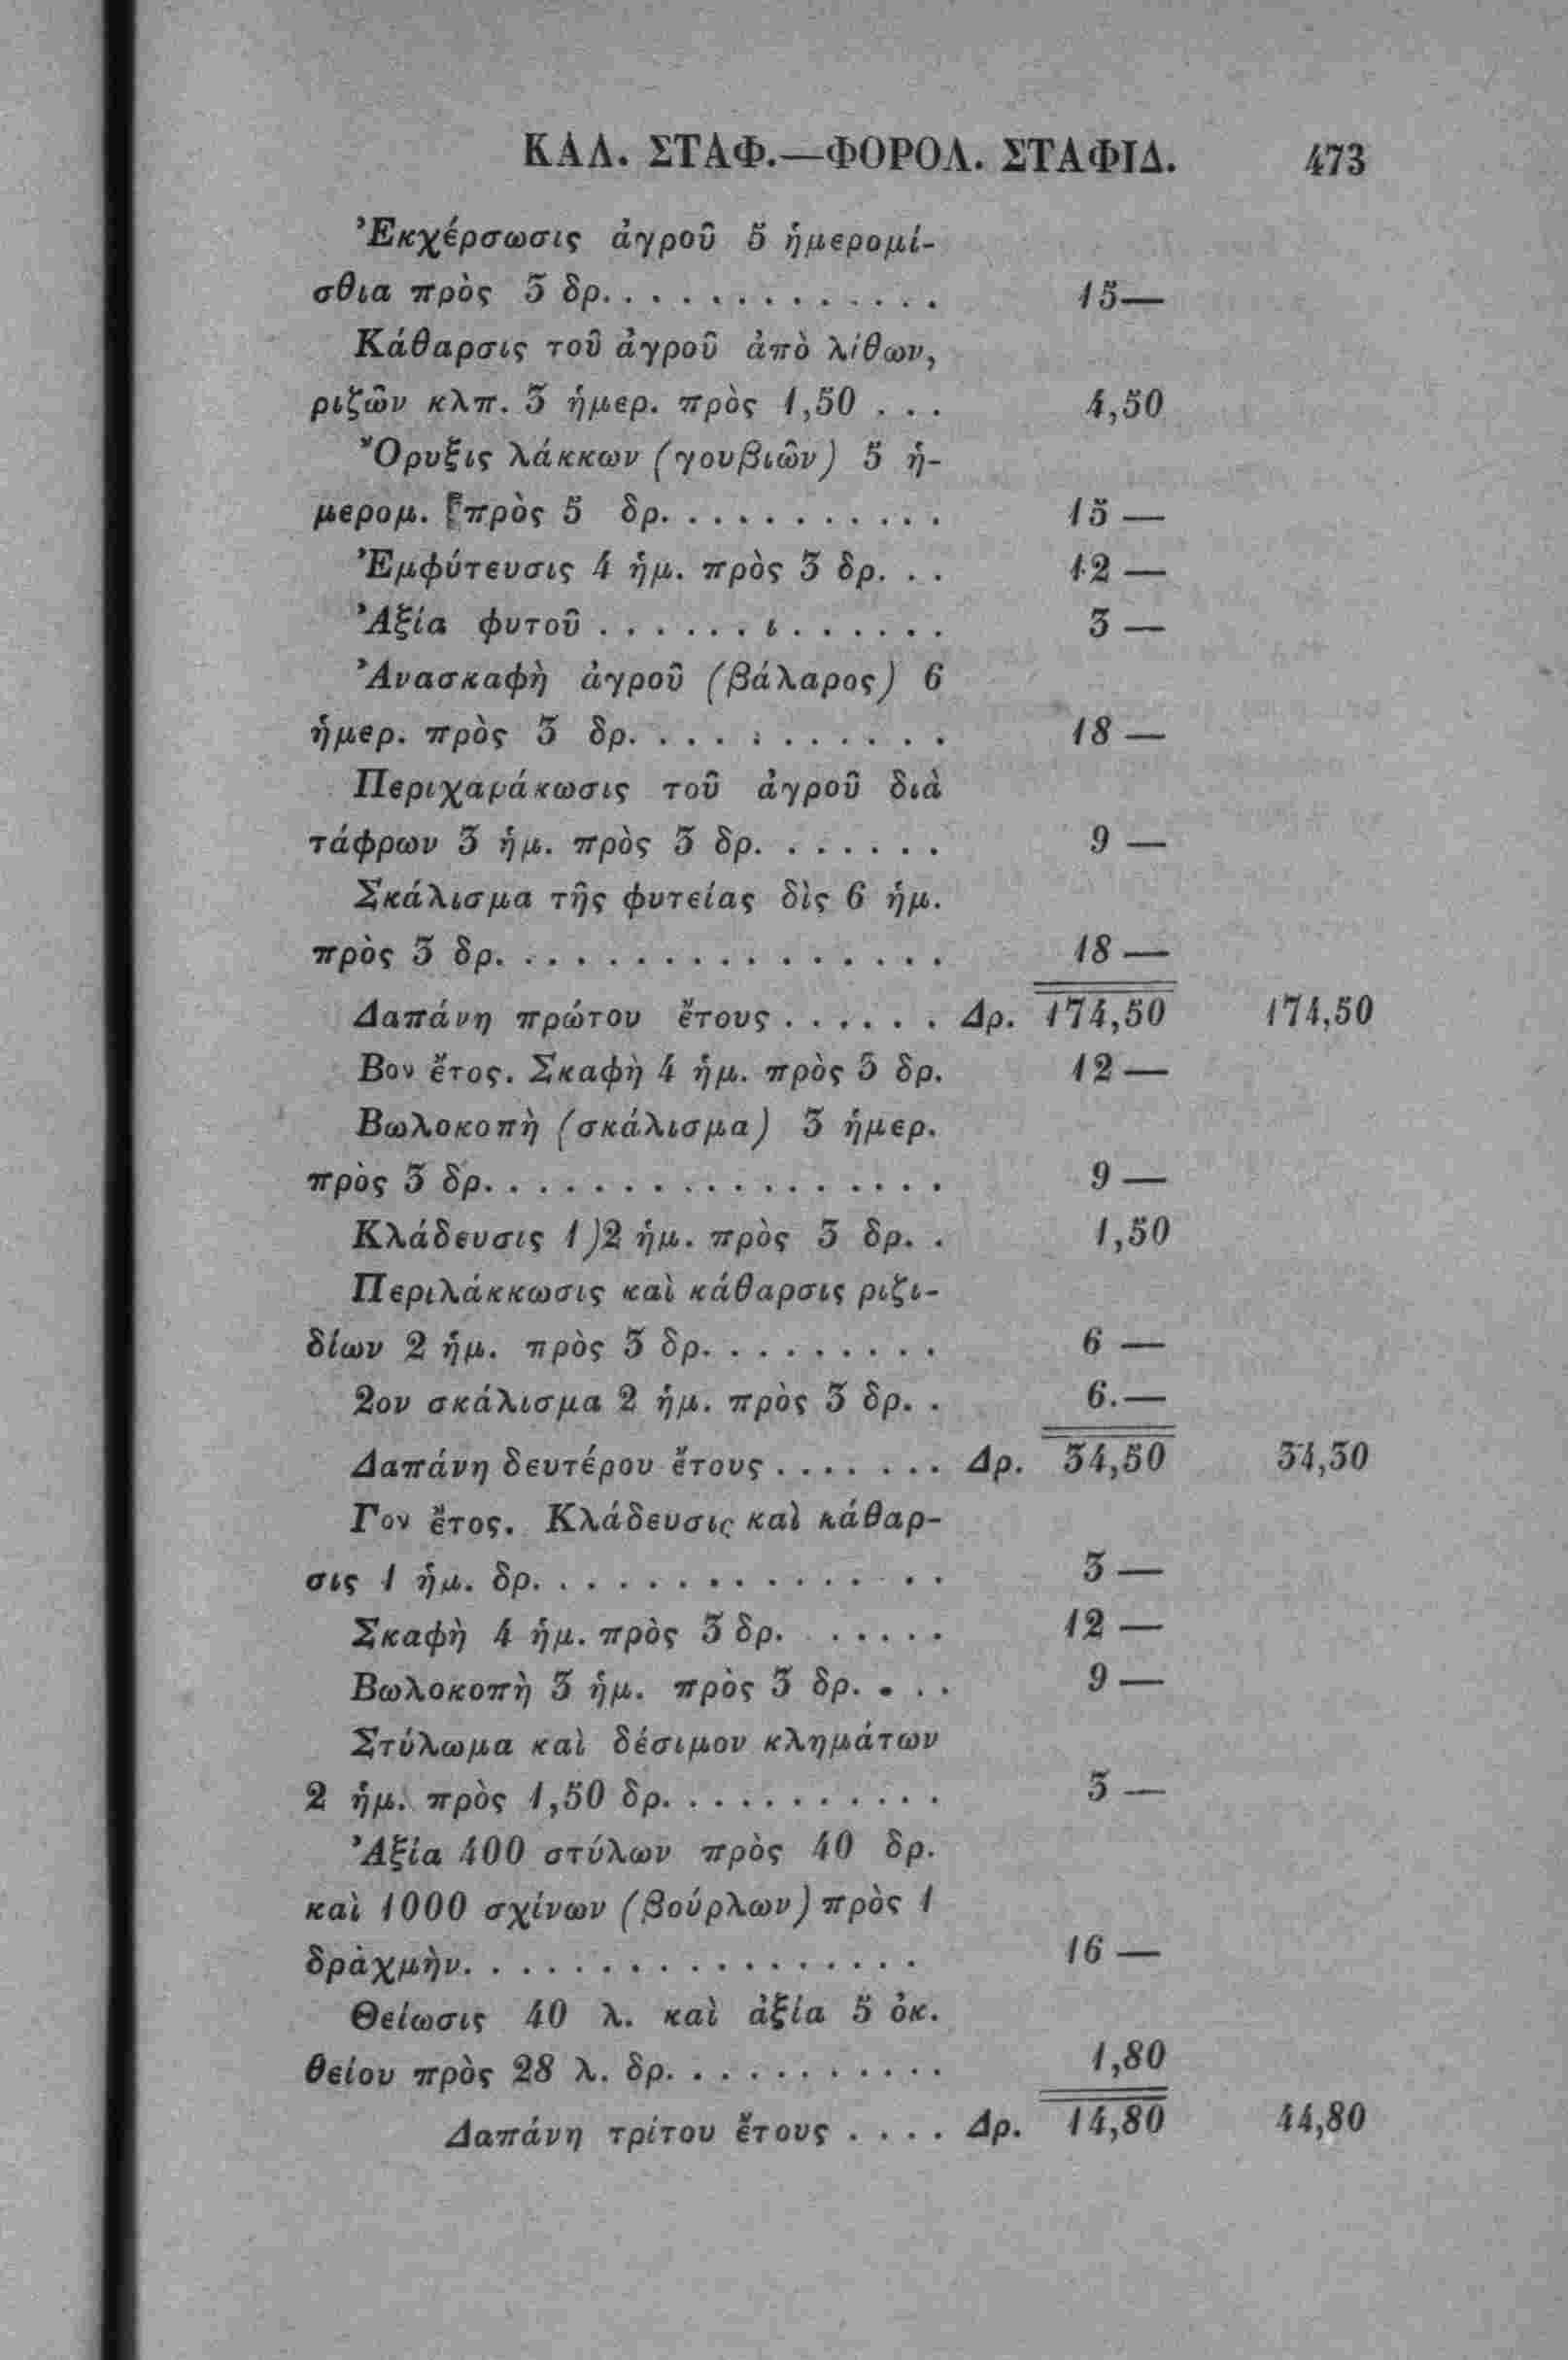 ΚΑΛ. ΣΤΑΦ.—ΦΟΡΟΛ. ΣΤΑΦΙΔ. 473
Ἐκχέρσωσις ἀγροῦ 5 ἡμερομί-
σθια πρὸς 3 δρ. . . . . . . . . . . . . 15—
Κάθαρσις τοῦ ἀγροῦ ἀπὸ λίθων,
ριζῶν κλπ. 3 ἡμερ. πρὸς 1,50 . . . 4,50
Ὄρυξις λάκκων (γουβιῶν) 5 ἡ-
μερομ. πρὸς 5 δρ. . . . . . . . . . . 15 —
Ἐμφύτευσις 4 ἡμ. πρὸς 3 δρ. . . 12 —
Ἀξία φυτοῦ . . . . . . . . . . . . . 3 —
Ἀνασκαφὴ ἀγροῦ (βάλαρος) 6
ἡμερ. πρὸς 3 δρ. . . . . . . . . . . . 18 —
Περιχαράκωσις τοῦ ἀγροῦ διὰ
τάφρων 3 ἡμ. πρὸς 3 δρ. . . . . . . 9 —
Σκάλισμα τῆς φυτείας δὶς 6 ἡμ.
πρὸς 3 δρ. . . . . . . . . . . . . . . . 18 —
Δαπάνη πρώτου ἔτους . . . . . . Δρ. 174,50 174,50
Βον ἔτος. Σκαφὴ 4 ἡμ. πρὸς 3 δρ. 12 —
Βωλοκοπὴ (σκάλισμα) 3 ἡμερ.
πρὸς 3 δρ. . . . . . . . . . . . . . . . . 9 —
Κλάδευσις 1)2 ἡμ. πρὸς 3 δρ. . 1,50
Περιλάκκωσις καὶ κάθαρσις ριζι-
δίων 2 ἡμ. πρὸς 3 δρ. . . . . . . . . 6 —
2ον σκάλισμα 2 ἡμ. πρὸς 3 δρ. . 6.—
Δαπάνη δευτέρου ἔτους . . . . . . . Δρ. 34,50 34,50
Γον ἔτος. Κλάδευσις καὶ κάθαρ-
σις 1 ἡμ. δρ. . . . . . . . . . . . . . . 3 —
Σκαφὴ 4 ἡμ. πρὸς 3 δρ. . . . . . 12 —
Βωλοκοπὴ 3 ἡμ. πρὸς 3 δρ. . . . 9 —
Στύλωμα καὶ δέσιμον κλημάτων
2 ἡμ. πρὸς 1,50 δρ. . . . . . . . . . . 3 —
Ἀξία 400 στύλων πρὸς 40 δρ.
καὶ 1000 σχίνων (βούρλων) πρὸς 1
δράχμὴν. . . . . . . . . . . . . . . . . 16 —
Θείωσις 40 λ. καὶ ἀξία 5 ὀκ.
θείου πρὸς 28 λ. δρ. . . . . . . . . . . 1,80
Δαπάνη τρίτου ἔτους . . . . Δρ. 14,80 44,80